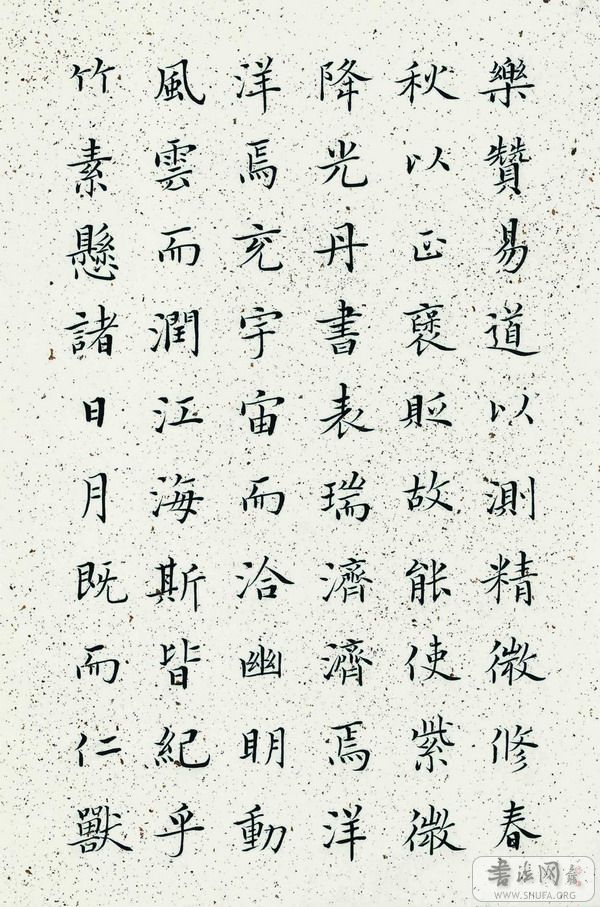 樂贊易道以測精微修春
秋以正褒貶故能使紫微
降光丹書表瑞濟濟焉洋
洋焉充宇宙而洽幽明動
風雲而潤江海斯皆紀乎
竹素懸諸日月既而仁獸
书法网
WWW.SNUFA.ORG